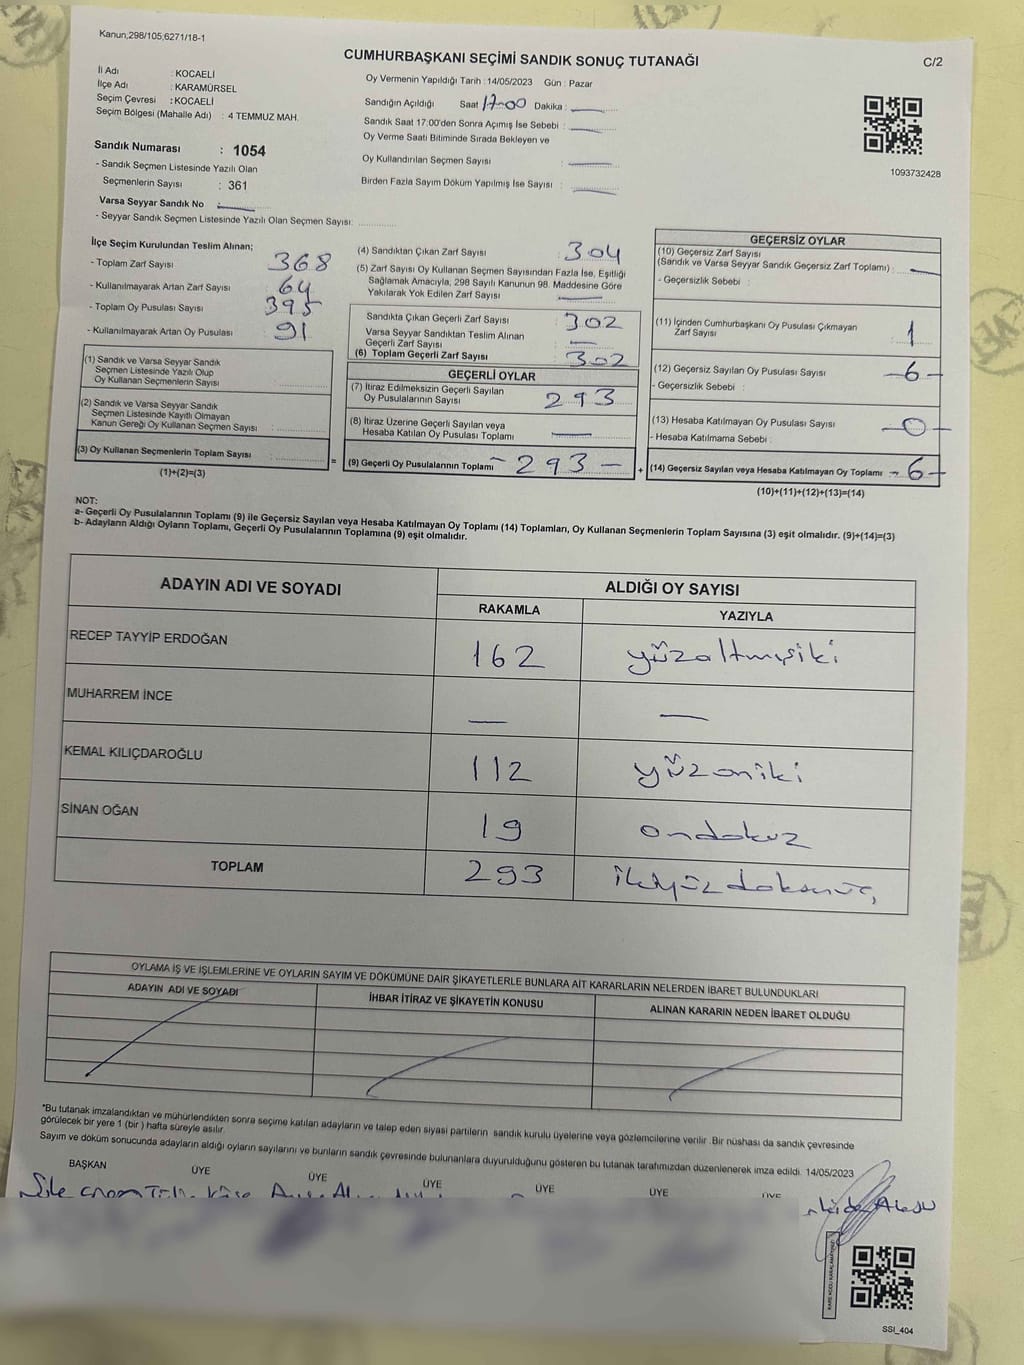 Kanun,298/105,6271/18-1
CUMHURBAŞKANI SEÇİMİ SANDIK SONUÇ TUTANAĞI
C/2
İl Adı : KOCAELİ
İlçe Adı : KARAMÜRSEL
Seçim Çevresi : KOCAELİ
Seçim Bölgesi (Mahalle Adı) : 4 TEMMUZ MAH.
Oy Vermenin Yapıldığı Tarih : 14/05/2023 Gün : Pazar
Sandığın Açıldığı Saat 17-00 Dakika : —
Sandık Saat 17:00'den Sonra Açımış İse Sebebi : —
Oy Verme Saati Bitiminde Sırada Bekleyen ve
Oy Kullandırılan Seçmen Sayısı : —
Birden Fazla Sayım Döküm Yapılmış İse Sayısı : —
1093732428
Sandık Numarası : 1054
- Sandık Seçmen Listesinde Yazılı Olan
Seçmenlerin Sayısı : 361
Varsa Seyyar Sandık No : —
- Seyyar Sandık Seçmen Listesinde Yazılı Olan Seçmen Sayısı:
İlçe Seçim Kurulundan Teslim Alınan;
- Toplam Zarf Sayısı : 368
- Kullanılmayarak Artan Zarf Sayısı : 64
- Toplam Oy Pusulası Sayısı : 395
- Kullanılmayarak Artan Oy Pusulası : 91
(1) Sandık ve Varsa Seyyar Sandık
Seçmen Listesinde Yazılı Olup
Oy Kullanan Seçmenlerin Sayısı :
(2) Sandık ve Varsa Seyyar Sandık
Seçmen Listesinde Kayıtlı Olmayan
Kanun Gereği Oy Kullanan Seçmen Sayısı :
(3) Oy Kullanan Seçmenlerin Toplam Sayısı :
(1)+(2)=(3)
=
(4) Sandıktan Çıkan Zarf Sayısı : 304
(5) Zarf Sayısı Oy Kullanan Seçmen Sayısından Fazla İse, Eşitliği
Sağlamak Amacıyla, 298 Sayılı Kanunun 98. Maddesine Göre
Yakılarak Yok Edilen Zarf Sayısı : —
Sandıkta Çıkan Geçerli Zarf Sayısı : 302
Varsa Seyyar Sandıktan Teslim Alınan
Geçerli Zarf Sayısı : —
(6) Toplam Geçerli Zarf Sayısı : 302
GEÇERLİ OYLAR
(7) İtiraz Edilmeksizin Geçerli Sayılan
Oy Pusulalarının Sayısı : 293
(8) İtiraz Üzerine Geçerli Sayılan veya
Hesaba Katılan Oy Pusulası Toplamı : —
(9) Geçerli Oy Pusulalarının Toplamı - 293 -
+
GEÇERSİZ OYLAR
(10) Geçersiz Zarf Sayısı
(Sandık ve Varsa Seyyar Sandık Geçersiz Zarf Toplamı) : —
- Geçersizlik Sebebi :
(11) İçinden Cumhurbaşkanı Oy Pusulası Çıkmayan
Zarf Sayısı : 1
(12) Geçersiz Sayılan Oy Pusulası Sayısı : -6-
- Geçersizlik Sebebi :
(13) Hesaba Katılmayan Oy Pusulası Sayısı : -0-
- Hesaba Katılmama Sebebi :
(14) Geçersiz Sayılan veya Hesaba Katılmayan Oy Toplamı : -6-
(10)+(11)+(12)+(13)=(14)
NOT:
a- Geçerli Oy Pusulalarının Toplamı (9) ile Geçersiz Sayılan veya Hesaba Katılmayan Oy Toplamı (14) Toplamları, Oy Kullanan Seçmenlerin Toplam Sayısına (3) eşit olmalıdır. (9)+(14)=(3)
b- Adayların Aldığı Oyların Toplamı, Geçerli Oy Pusulalarının Toplamına (9) eşit olmalıdır.
ADAYIN ADI VE SOYADI
ALDIĞI OY SAYISI
RAKAMLA YAZIYLA
RECEP TAYYİP ERDOĞAN 162 yüzaltmışiki
MUHARREM İNCE — —
KEMAL KILIÇDAROĞLU 112 yüzoniki
SİNAN OĞAN 19 ondokuz
TOPLAM 293 ikiyüzdoksanüç
OYLAMA İŞ VE İŞLEMLERİNE VE OYLARIN SAYIM VE DÖKÜMÜNE DAİR ŞİKAYETLERLE BUNLARA AİT KARARLARIN NELERDEN İBARET BULUNDUKLARI
ADAYIN ADI VE SOYADI İHBAR İTİRAZ VE ŞİKAYETİN KONUSU ALINAN KARARIN NEDEN İBARET OLDUĞU
*Bu tutanak imzalandıktan ve mühürlendikten sonra seçime katılan adayların ve talep eden siyasi partilerin sandık kurulu üyelerine veya gözlemcilerine verilir. Bir nüshası da sandık çevresinde
görülecek bir yere 1 (bir) hafta süreyle asılır.
Sayım ve döküm sonucunda adayların aldığı oyların sayılarını ve bunların sandık çevresinde bulunanlara duyurulduğunu gösteren bu tutanak tarafımızdan düzenlenerek imza edildi. 14/05/2023
BAŞKAN ÜYE ÜYE ÜYE ÜYE ÜYE ÜYE
SSI_404